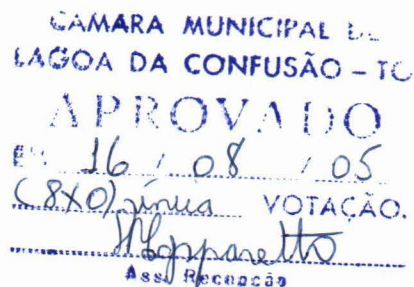 CAMARA MUNICIPAL D
LAGOA DA CONFUSÃO - TO
APROVADO
EM 16 / 08 / 05
(8X0) única VOTAÇÃO.
Ass. Recepção